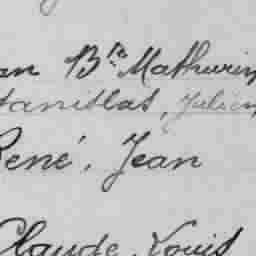 an Bte Mathurin
tanislas, Julien,
René, Jean
Claude, Louis